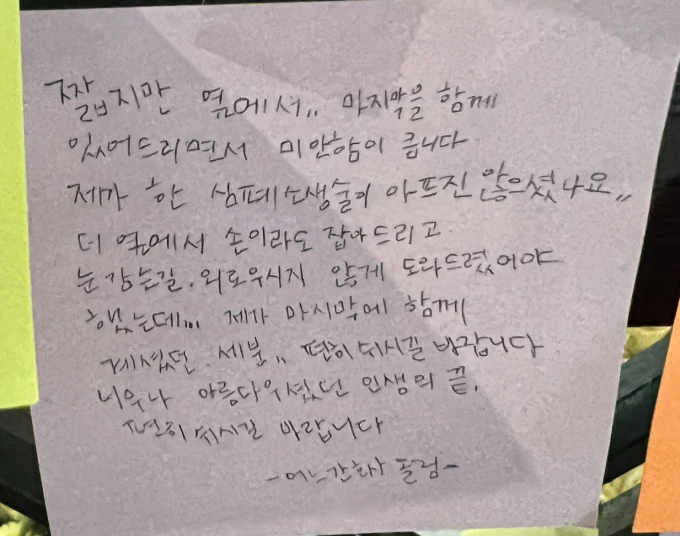 짧지만 옆에서,, 마지막을 함께
있어드리면서 미안함이 큽니다
제가 한 심폐소생술이 아프진 않으셨나요,,
더 옆에서 손이라도 잡아드리고
눈감는길. 외로우시지 않게 도와드렸어야
했는데... 제가 마지막에 함께
계셨던 세분,, 편히쉬시길 바랍니다
너무나 아름다우셨던 인생의 끝,
편히쉬시길 바랍니다
-어느간호사 올림-